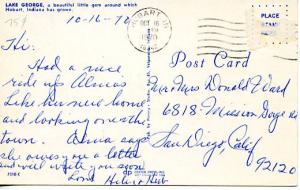 LAKE GEORGE, a beautiful little gem around which
Hobart, Indiana has grown.
10-16-70
Hi:
Had a nice
ride up Alma's
Like her new home
and looking over the
town. Alma says
she owes you a letter
and will write you soon
Love Helen & Herb
HOBART, IN
OCT 16
1970
PLACE
STAMP
HERE
Post Card
Mr & Mrs Donald Ward
6818 Mission Gorge Rd
San Diego, Calif
92120